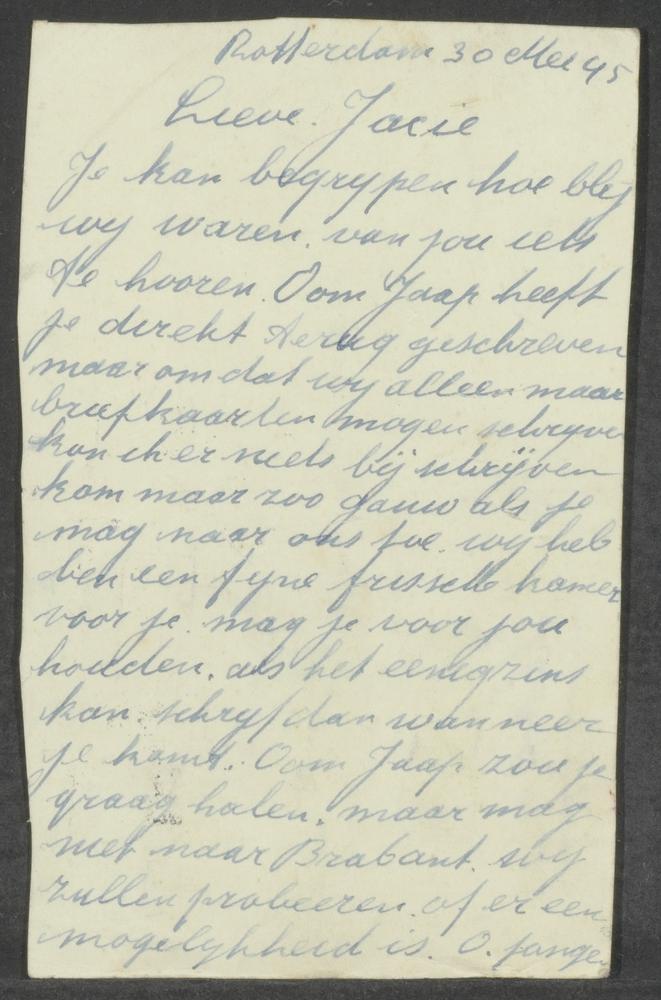 Rotterdam 30 Mei 45
Lieve Jacie
Je kan begrypen hoe bly
wy waren. van jou iets
te hooren. Oom Jaap heeft
je direkt terug geschreven
maar omdat wy alleen maar
briefkaarten mogen schryven
kon ik er niets bij schrijven
kom maar zoo gauw als je
mag naar ons toe. wy heb
ben een fyne frissche kamer
voor je. mag je voor jou
houden. als het eenigzins
kan. schryf dan wanneer
je komt. Oom Jaap zou je
graag halen. maar mag
niet naar Brabant. wy
zullen probeeren. of er een
mogelykheid is. O. jongen